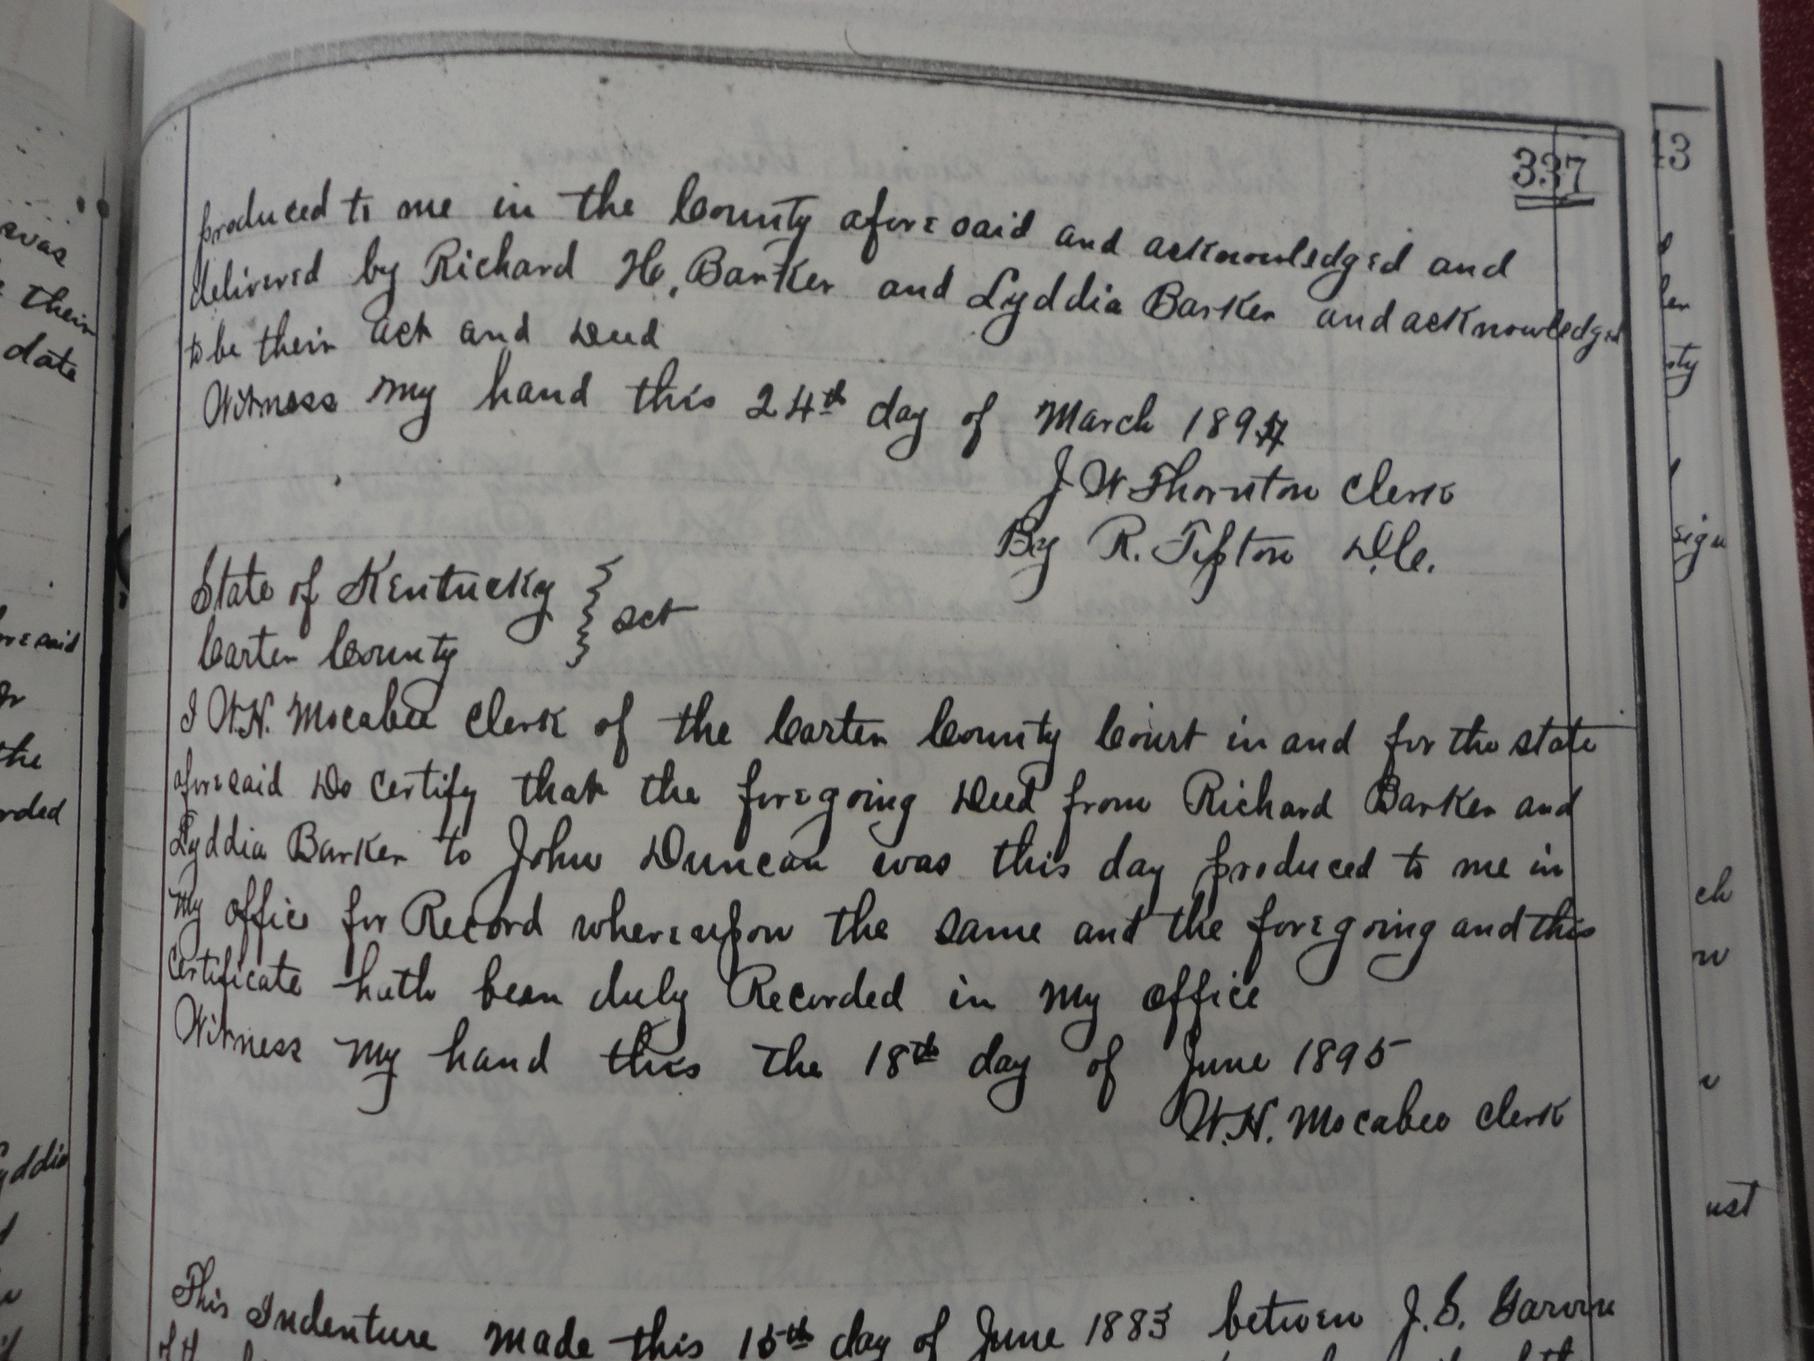 337
produced to me in the County aforesaid and acknowledged and
delivered by Richard H. Barker and Lyddia Barker and acknowledged
to be their act and Deed
Witness my hand this 24th day of March 189
J W Thornton Clerk
By R. Tipton D.C.
State of Kentucky } Sct
Carter County
I W.H. Mocabee Clerk of the Carter County Court in and for the state
aforesaid Do certify that the foregoing Deed from Richard Barker and
Lyddia Barker to John Duncan was this day produced to me in
my office for Record whereupon the same and the foregoing and this
certificate hath been duly Recorded in my office
Witness my hand this the 18th day of June 1895
W.H. Mocabee Clerk
This Indenture made this 15th day of June 1883 between J.S. Garvin
was
their
date
aforesaid
the
13
sign
ust